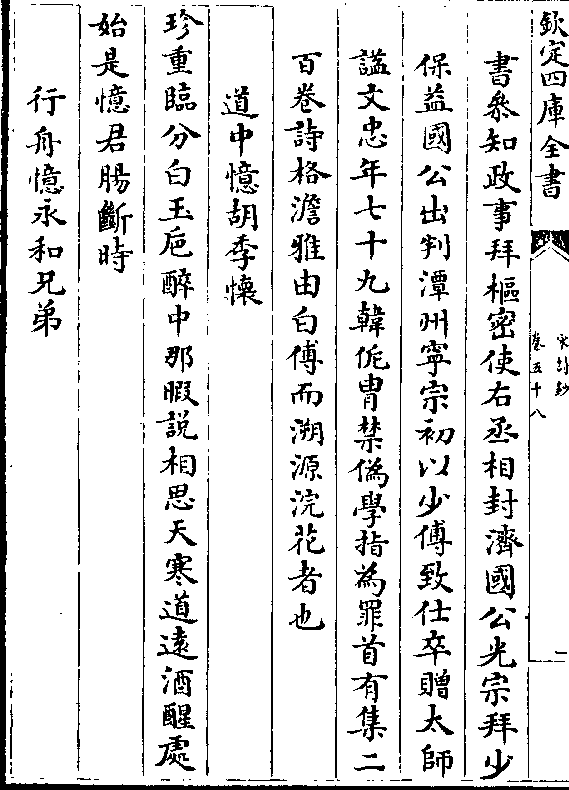 欽定四庫全書
宋詩鈔
卷五十八
二
書叅知政事拜樞密使右丞相封濟國公光宗拜少
保益國公出判潭州寧宗初以少傅致仕卒贈太師
諡文忠年七十九韓侂胄禁僞學指爲罪首有集二
百卷詩格澹雅由白傅而溯源浣花者也
道中憶胡季懷
珍重臨分白玉巵醉中那暇説相思天寒道遠酒醒處
始是憶君腸斷時
行舟憶永和兄弟